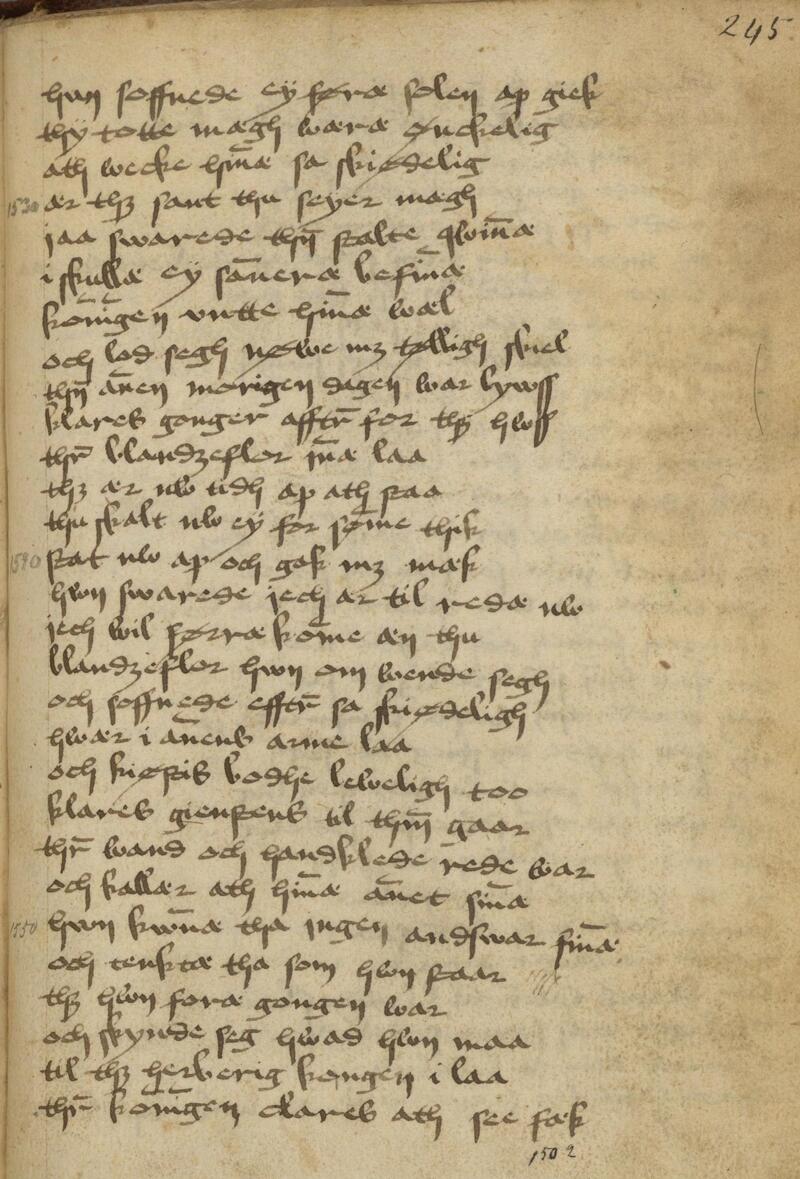 245
hwn soffnede ey føræ solen op giek
thy totte mægh wæræ ønckelig
ath wecke hin̄æ sa skiødelig
1530 ær thz sant thu seyer mægh
jaa swarede thn̄ stalte qwin̄æ
i skullæ ey san̄eræ befin̄æ
kon̄īgen vntte hin̄æ wæl
och lod segh nøwe mz tølligh skiel
thn̄ an̄en morigen dagen war lywss
klares gonger afftr̄ for thz hwss
thr̄ blandzeflor in̄æ laa
thz ær nw tidh op ath staa
thu skalt nw ey for søm̄e thik
1540 stat nw op och gak mz mæk
hwn swarede jech ær til redæ nw
jech wil førræ kom̄e æn thu
blandzeflor hwn om wende segh
och soffnede efftr̄ sa skiødeligh
hwær i an̄ens arme laa
och kiøstis bodhe leweligh too
klares gienstens til thin̄ gaar
thr̄ wand och handklede rede war
och kallær ath hin̄æ an̄et sin̄æ
1550 hwn kwn̄æ tha ingen andswar fin̄æ
och tenktæ tha som hwn staar
thz hwn foræ gongen war
och skynde seg hwad hwn maa
til thz herberig kongen i laa
thr̄ kon̄īgen clares ath see fæk
1502